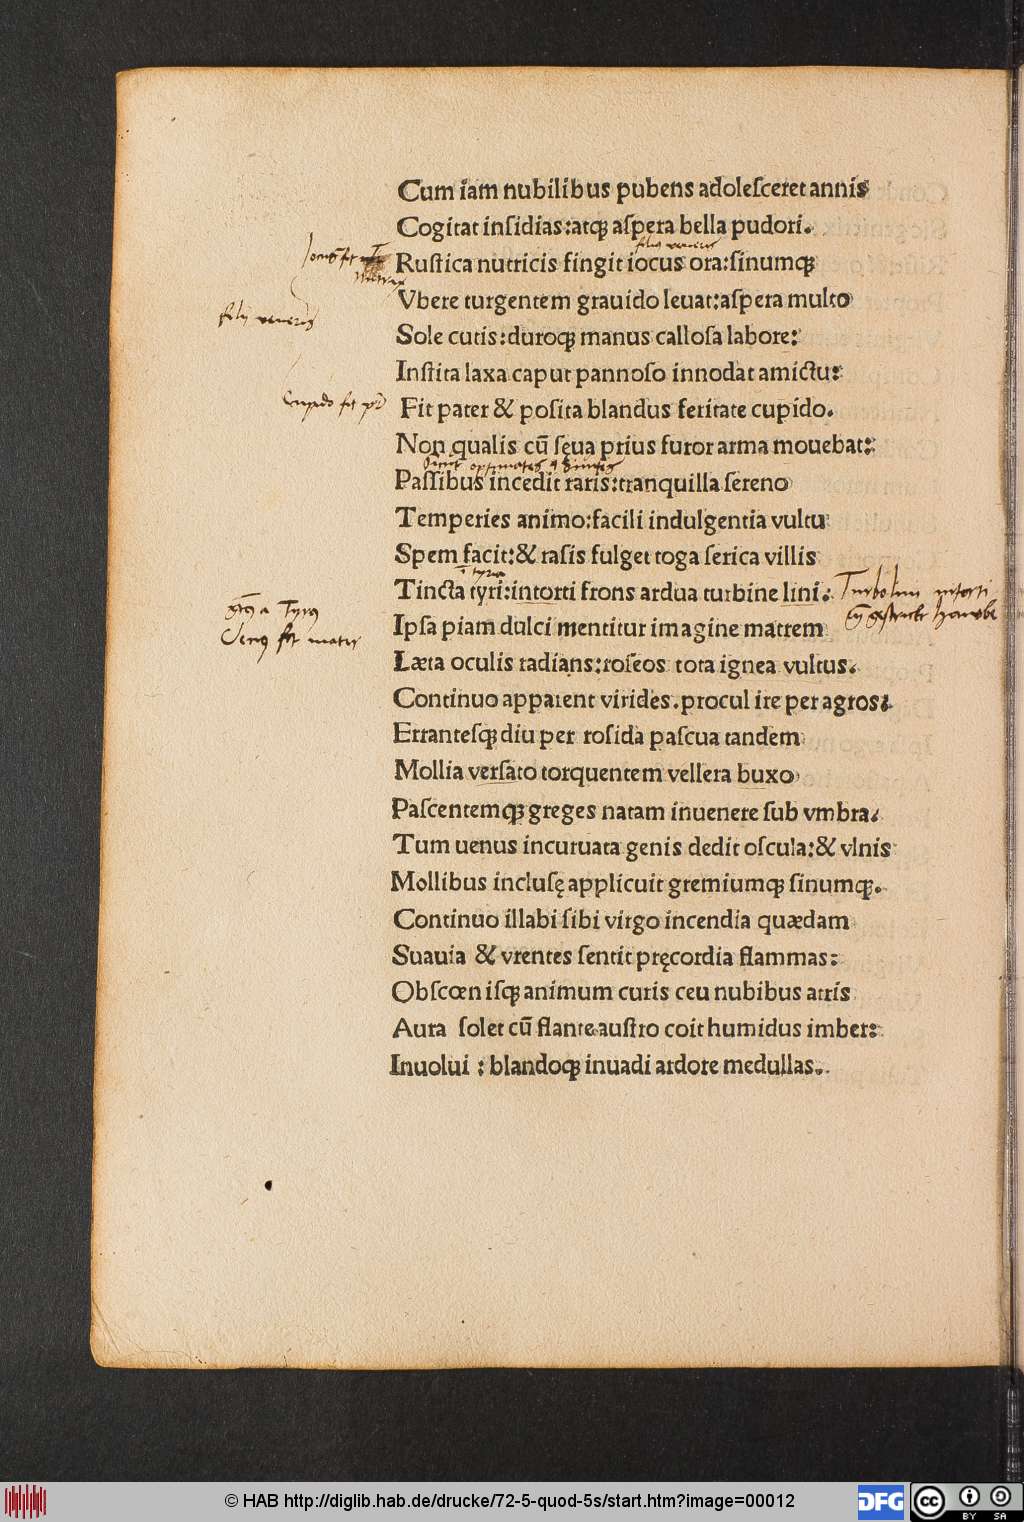 Cum iam nubilibus pubens adolesceret annis
Cogitat insidias:atqꝫ aspera bella pudori.
filius veneris
Iocus fit
Rustica nutricis fingit iocus ora:sinumqꝫ
Vbere turgentem grauido leuat:aspera multo
filij veneris
Sole cutis:duroqꝫ manus callosa labore:
Instita laxa caput pannoso innodat amictu:
Cupido fit pr̄
Fit pater & posita blandus feritate cupido.
Non qualis cū sęua prius furor arma mouebat:
Passibus incedit raris:tranquilla sereno
Temperies animo:facili indulgentia vultu
Spem facit:& rasis fulget toga serica villis
Tincta tyri:intorti frons ardua turbine lini.
Turbo lini intorti
a Tyro
Venus fit mater
Ipsa piam dulci mentitur imagine matrem
Læta oculis radians:roseos tota ignea vultus.
Continuo apparent virides.procul ire per agros:
Errantesqꝫ diu per rosida pascua tandem
Mollia versato torquentem vellera buxo
Pascentemqꝫ greges natam inuenere sub vmbra.
Tum uenus incuruata genis dedit oscula:& vlnis
Mollibus inclusę applicuit gremiumqꝫ sinumqꝫ.
Continuo illabi sibi virgo incendia quædam
Suauia & vrentes sentit pręcordia flammas:
Obscœnisqꝫ animum curis ceu nubibus atris
Aura solet cū flante austro coit humidus imber:
Inuolui : blandoqꝫ inuadi ardore medullas.
© HAB http://diglib.hab.de/drucke/72-5-quod-5s/start.htm?image=00012
DFG
cc BY SA